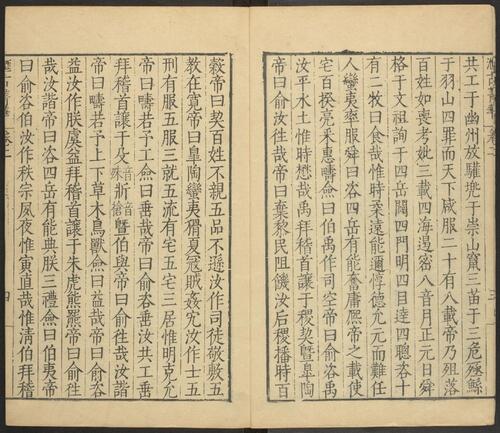 共工于幽州放驩兜于崇山竄三苗于三危殛鯀
于羽山四罪而天下咸服二十有八載帝乃殂落
百姓如喪考妣三載四海遏密八音月正元日舜
格于文祖詢于四岳闢四門明四目達四聰咨十
有二牧曰食哉惟時柔遠能邇惇德允元而難任
人蠻夷率服舜曰咨四岳有能奮庸熈帝之載使
宅百揆亮采惠疇僉曰伯禹作司空帝曰俞咨禹
汝平水土惟時懋哉禹拜稽首讓于稷契曁皐陶
帝曰俞汝往哉帝曰棄黎民阻饑汝后稷播時百
穀帝曰契百姓不親五品不遜汝作司徒敬敷五
教在寛帝曰皐陶蠻夷猾夏冦賊姦宄汝作士五
刑有服五服三就五流有宅五宅三居惟明克允
帝曰疇若予工僉曰垂哉帝曰俞咨垂汝共工垂
拜稽首讓于殳音殊斨音槍曁伯與帝曰俞往哉汝諧
帝曰疇若予上下草木鳥獸僉曰益哉帝曰俞咨
益汝作朕虞益拜稽首讓于朱虎熊羆帝曰俞往
哉汝諧帝曰咨四岳有能典朕三禮僉曰伯夷帝
曰俞咨伯汝作秩宗夙夜惟寅直哉惟清伯拜稽
四